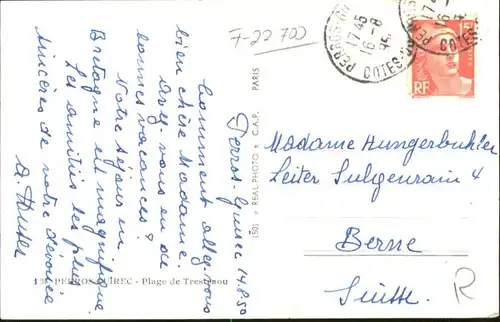 7-22 700
PERROS-
17 45
16-8
COTES-
15F
RF
Perros-Guirec 14.8.50
Comment allez-vous
bien chère Madame.
Avez-vous eu de
bonnes vacances?
Notre séjour en
Bretagne est magnifique
Les amitiés les plus
sincères de votre dévouée
Madame Hungerbuhler
Leiter Sulgenrain 4
Berne
Suisse
R
(50) REAL-PHOTO C.A.P. PARIS
PERROS-GUIREC - Plage de Trestraou